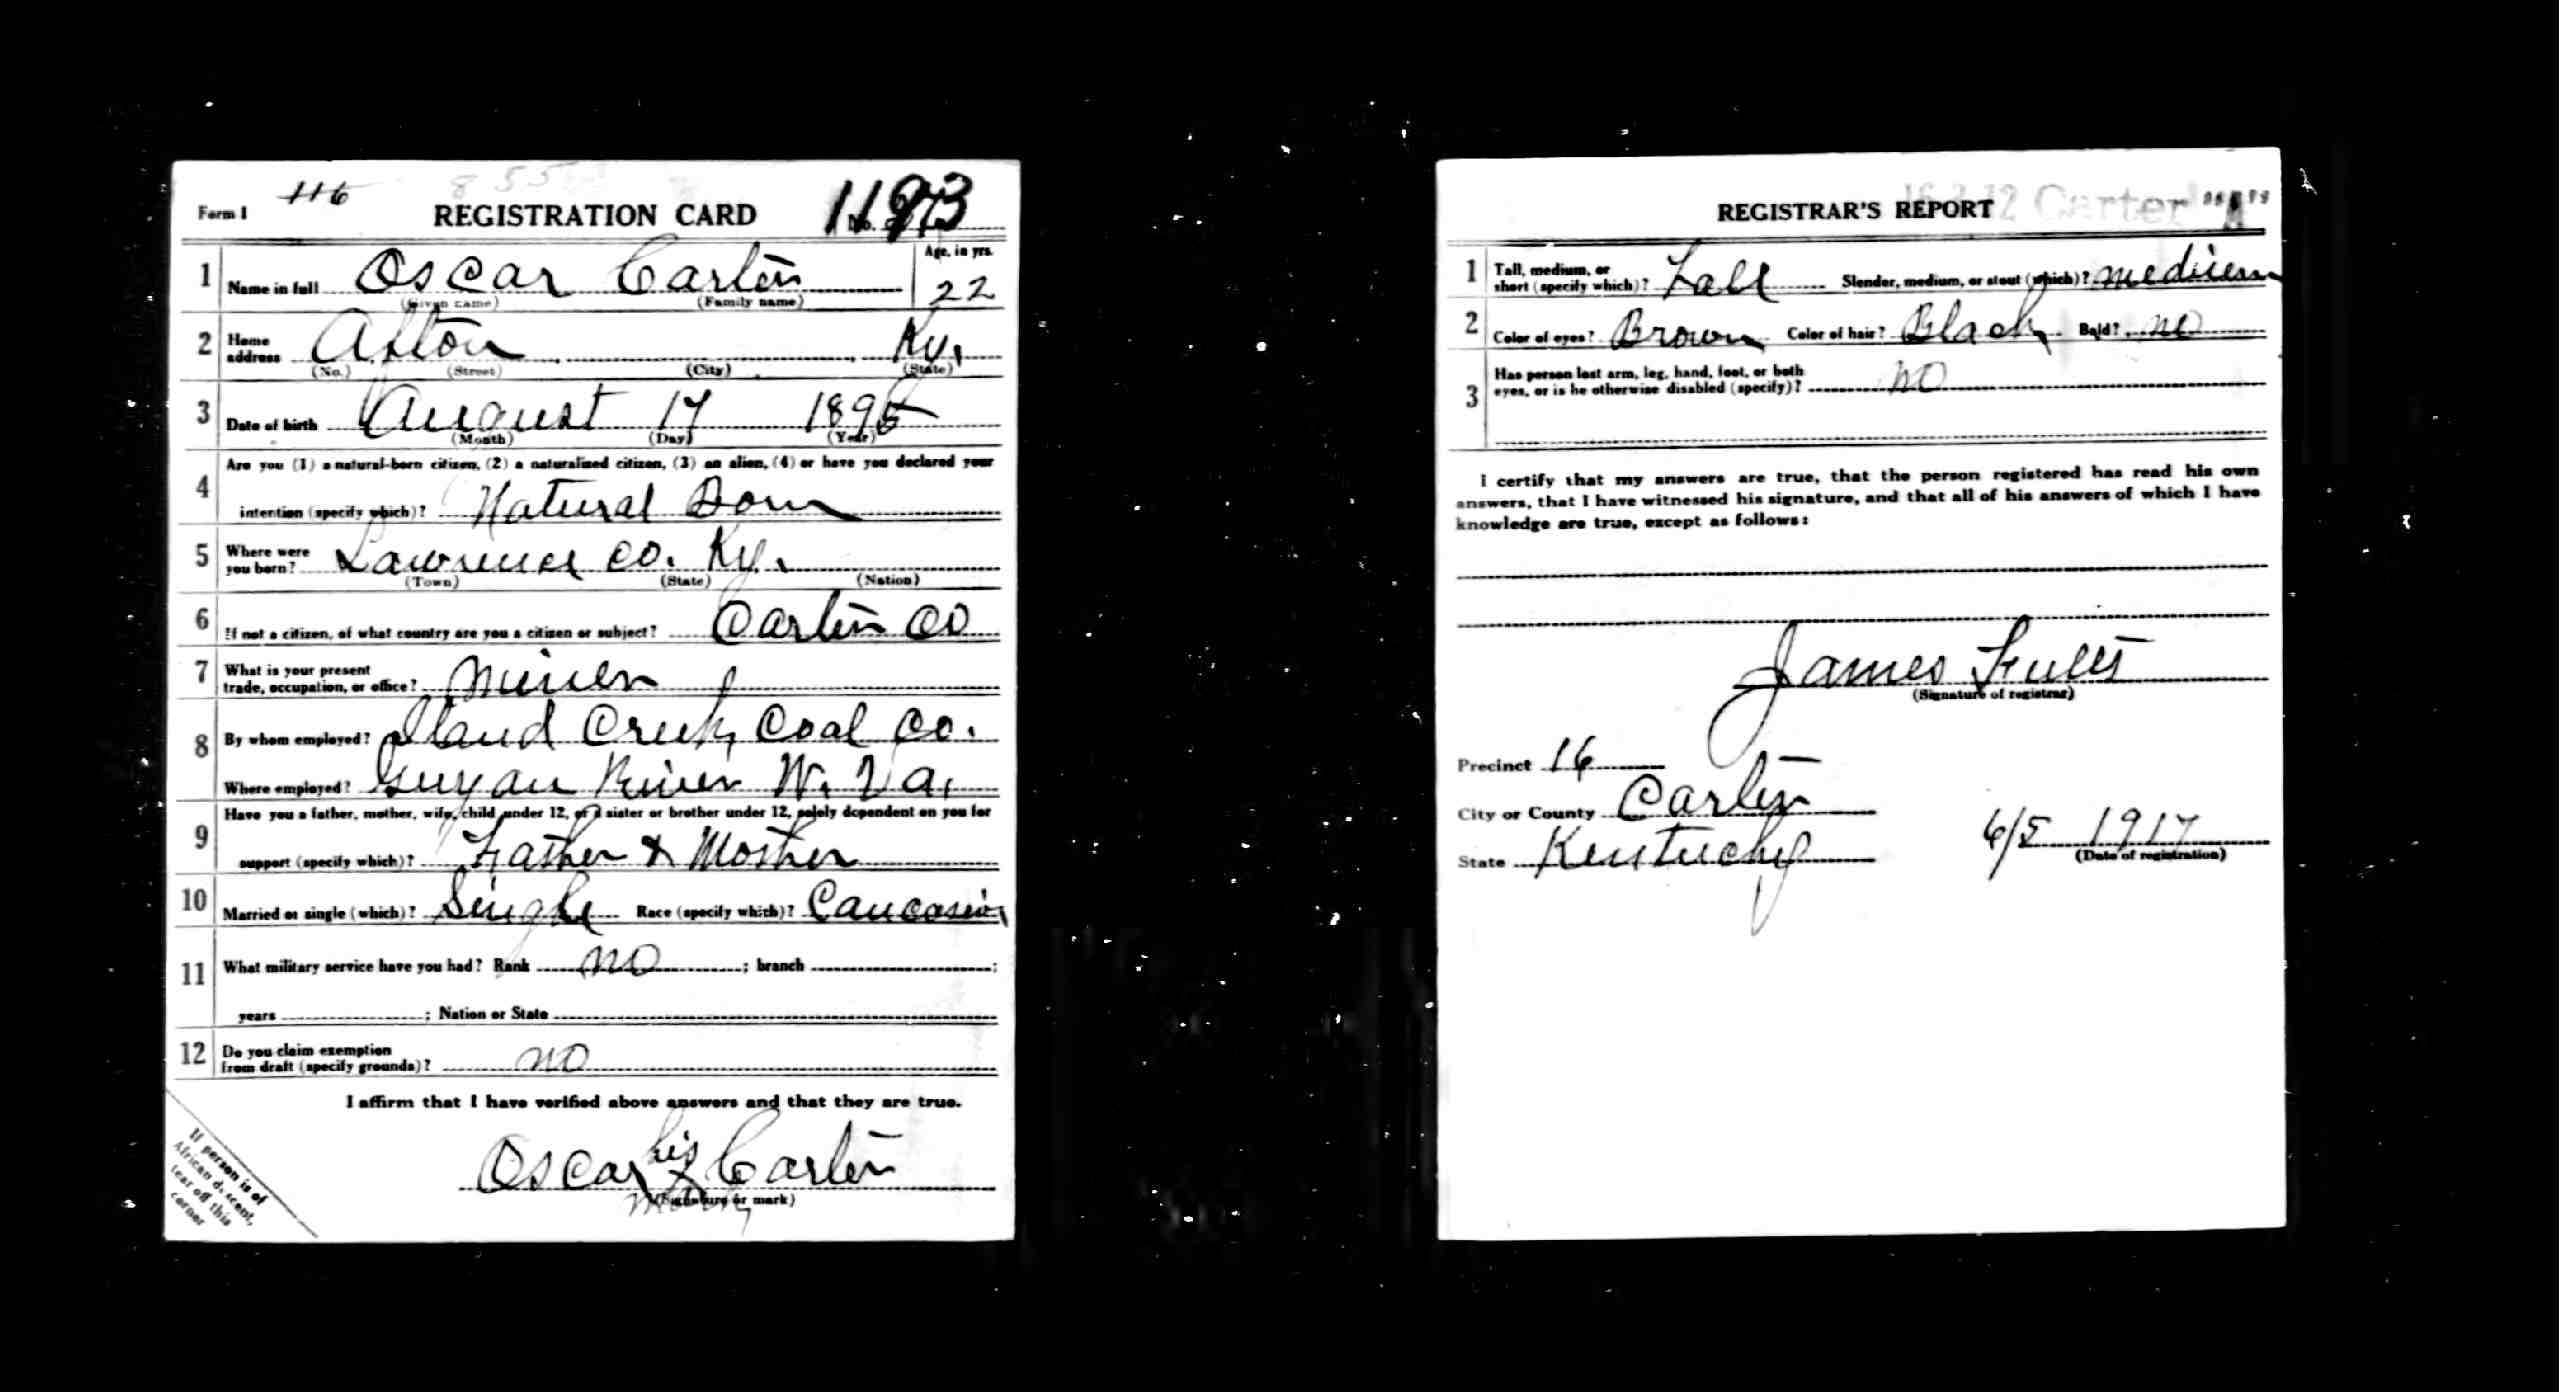 Form 1 116 REGISTRATION CARD No.
1 Name in full Oscar Carter Age, in yrs. 22
(Given name) (Family name)
2 Home address Afton Ky.
(No.) (Street) (City) (State)
3 Date of birth August 17 1895
(Month) (Day) (Year)
Are you (1) a natural-born citizen, (2) a naturalized citizen, (3) an alien, (4) or have you declared your
4 intention (specify which)? Natural Born
5 Where were you born? Lawrence Co. Ky.
(Town) (State) (Nation)
6 If not a citizen, of what country are you a citizen or subject? Carter Co
7 What is your present trade, occupation, or office? Miner
8 By whom employed? Iland Creek Coal Co.
Where employed? Guyan River W. Va.
Have you a father, mother, wife, child under 12, or a sister or brother under 12, solely dependent on you for
9 support (specify which)? Father & Mother
10 Married or single (which)? Single Race (specify which)? Caucasian
11 What military service have you had? Rank no ; branch ;
years ; Nation or State
12 Do you claim exemption from draft (specify grounds)? no
I affirm that I have verified above answers and that they are true.
his
Oscar X Carter
mark
(Signature or mark)
If person is of
African descent,
tear off this
corner
16-2-12 Carter "A"
REGISTRAR'S REPORT
1 Tall, medium, or short (specify which)? Tall Slender, medium, or stout (which)? medium
2 Color of eyes? Brown Color of hair? Black Bald? no
3 Has person lost arm, leg, hand, foot, or both eyes, or is he otherwise disabled (specify)? no
I certify that my answers are true, that the person registered has read his own
answers, that I have witnessed his signature, and that all of his answers of which I have
knowledge are true, except as follows:
James Fults
(Signature of registrar)
Precinct 16
City or County Carter
State Kentucky 6/5 1917
(Date of registration)